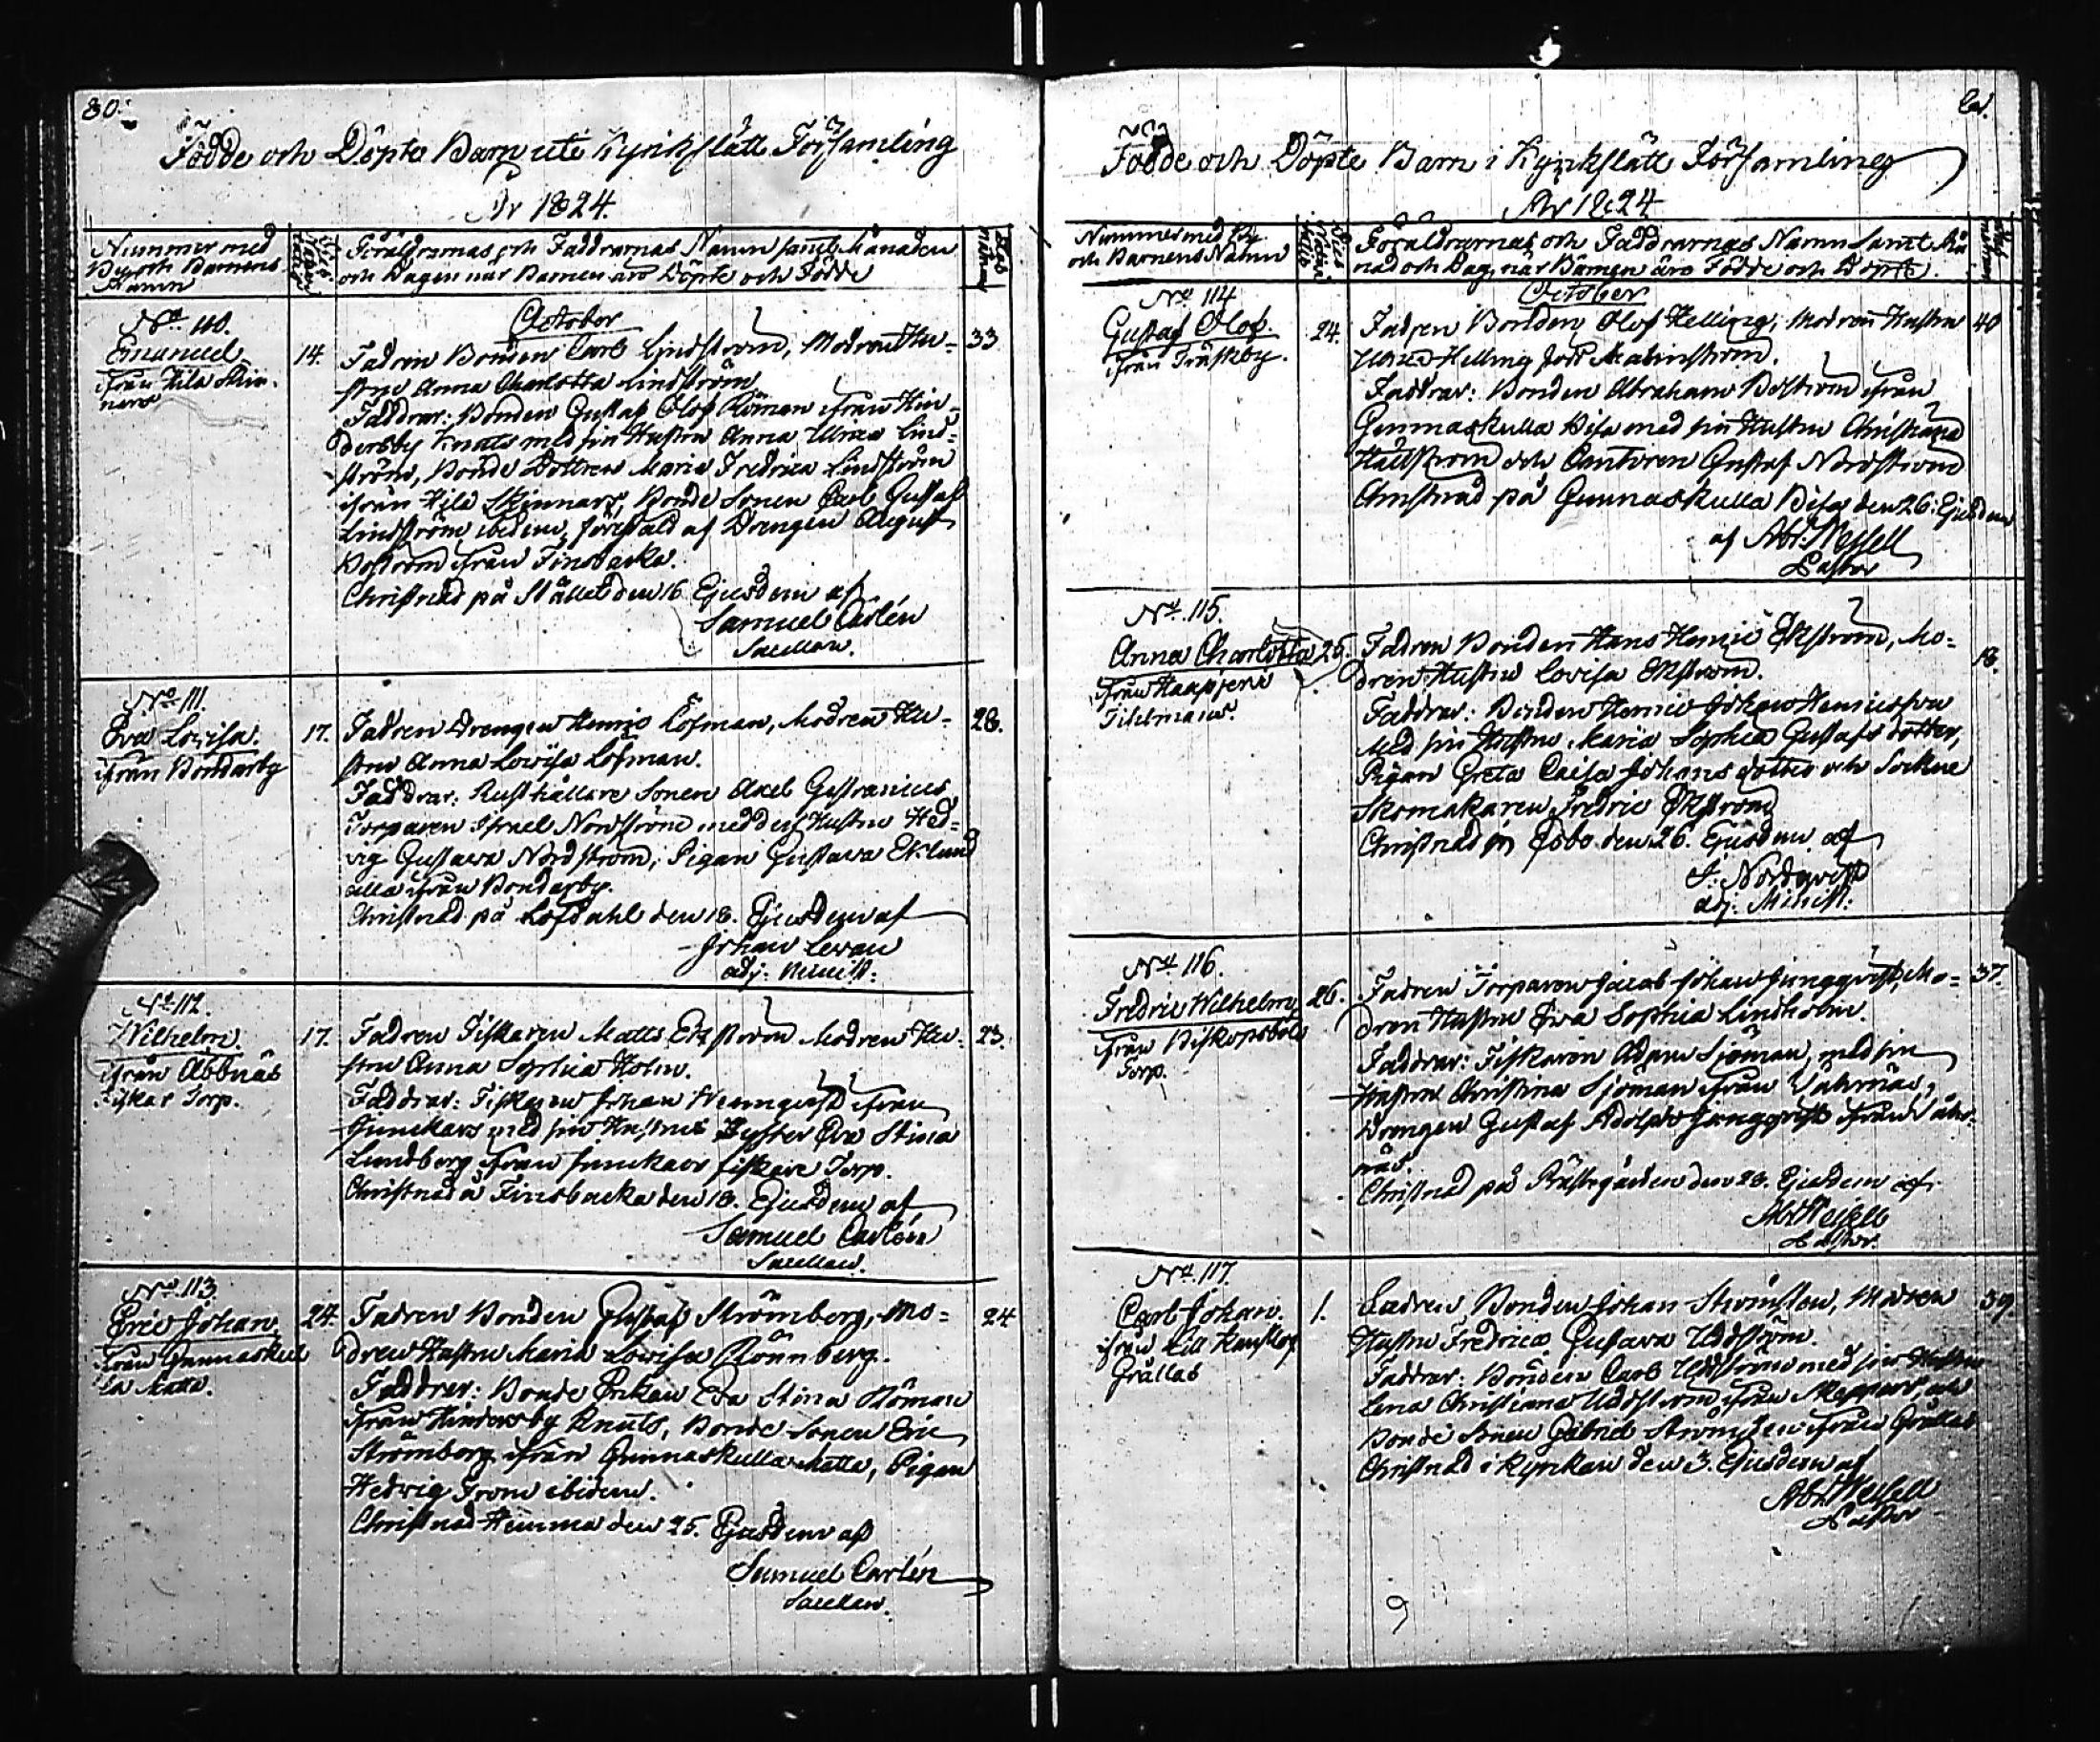 80.
Födde och Döpte Barn uti Kyrkslätt Församling
År 1824.
Nummer med
By och Barnens
Namn
Föräldrarnas och Faddrarnas Namn samt Månaden
och Dagen när Barnen äro Döpte och Födde
October
No 110.
Emanuel
ifrån Hila Skin-
nars
14.
Fadren Bonden Carl Lindström, Modren Hu-
strun Anna Charlotta Lindström
Faddrar: Bonden Gustaf Olof Röman ifrån Hin-
dersby Knuts med sin Hustru Anna Ulrica Lind-
ström, Bonde Dottren Maria Fredrica Lindström
ifrån Hila Skinnars, Bonde Sonen Carl Gustaf
Lindström ibidem, föreståld af Drengen August
Boström ifrån Finsbacka.
Christnad på Stället den 16 Ejusdem af
Samuel Carlén
Sacellan.
33
No 111.
Eva Lovisa.
ifrån Bondarby
17.
Fadren Drengen Henric Löfman, Modren Hu-
stru Anna Lovisa Löfman.
Faddrar: Rusthållare Sonen Axel Gestranius
Torparen Israel Nordström med dess Hustru Hed-
vig Gustava Nordström, Pigan Gustava Eklund
alla ifrån Bondarby.
Christnad på Löfdahl den 18. Ejusdem af
Johan Levan
adj: Minist:
28.
No 112.
Wilhelm.
ifrån Abbnäs
Fiskar Torp.
17.
Fadren Fiskaren Matts Ekström Modren Hu-
stru Anna Sophia Holm.
Faddrar: Fiskaren Johan Wennqvist ifrån
Junckars med sin Hustrus Syster Eva Stina
Lundberg ifrån Junckars fiskare Torp.
Christnad å Finsbacka den 18. Ejusdem af
Samuel Carlén
Sacellan.
23.
No 113.
Eric Johan.
ifrån Gunnaskul
la Matts.
24.
Fadren Bonden Gustaf Strömberg, Mo-
dren Hustru Maria Lovisa Rönnberg.
Faddrar: Bonde Enkan Eva Stina Röman
ifrån Hindersby Knuts, Bonde Sonen Eric
Strömberg ifrån Gunnaskulla Matts, Pigan
Hedvig From ibidem.
Christnad Hemma den 25. Ejusdem af
Samuel Carlén
Sacellan.
24
81.
Födde och Döpte Barn i Kyrkslätt Församling
År 1824
Nummer med By
och Barnens Namn
Föräldrarnas och Faddrarnas Namn samt Må-
nad och Dag, när Barnen äro Födde och Döpte.
October
No 114
Gustaf Olof.
ifrån Träskby.
24.
Fadren Bonden Olof Helling, Modren Hustru
Ulrica Helling född Malmström.
Faddrar: Bonden Abraham Boström ifrån
Gunnaskulla Bisa med sin Hustru Christiana
Hällström och Cantoren Gustaf Nordström
Christnad på Gunnaskulla Bisa den 26. Ejusdem
af Abr: Wessell
Pastor
40
No 115.
Anna Charlotta
ifrån Haapjerv
25.
Fadren Bonden Hans Henric Ekström, Mo-
dren Hustru Lovisa Ekström.
Faddrar: Bonden Henric Johan Henricsson
med sin Hustru Maria Sophia Gustafs dotter,
Pigan Greta Caisa Johans dotter och Sockne
Skomakaren Fredric Ekström
Christnad på Esbo den 26. Ejusdem af
J. Nordqvist
adj: Minist:
18.
No 116.
Fredric Wilhelm
ifrån Biskopsböle
Torp.
26.
Fadren Torparen Jacob Johan Ljungqvist, Mo-
dren Hustru Eva Sophia Lindholm.
Faddrar: Fiskaren Adam Sjöman, med sin
Hustru Christina Sjöman ifrån Vahrnäs,
Drengen Gustaf Adolph Ljungqvist ifrån Vahr-
näs.
Christnad på Prästgården den 28. Ejusdem af
Abr: Wessell
Pastor.
37.
No 117.
Carl Johan.
Grällas
1.
Fadren Bonden Johan Strömsten, Modren
Hustru Fredrica Gustava Uddström.
Faddrar: Bonden Carl Uddström med sin Hustru
Lena Christiana Uddström ifrån Skeppars, och
Bonde Sonen Gabriel Strömsten ifrån Grällas
Christnad i Kyrkan den 3. Ejusdem af
Abr: Wessell
Pastor
39.